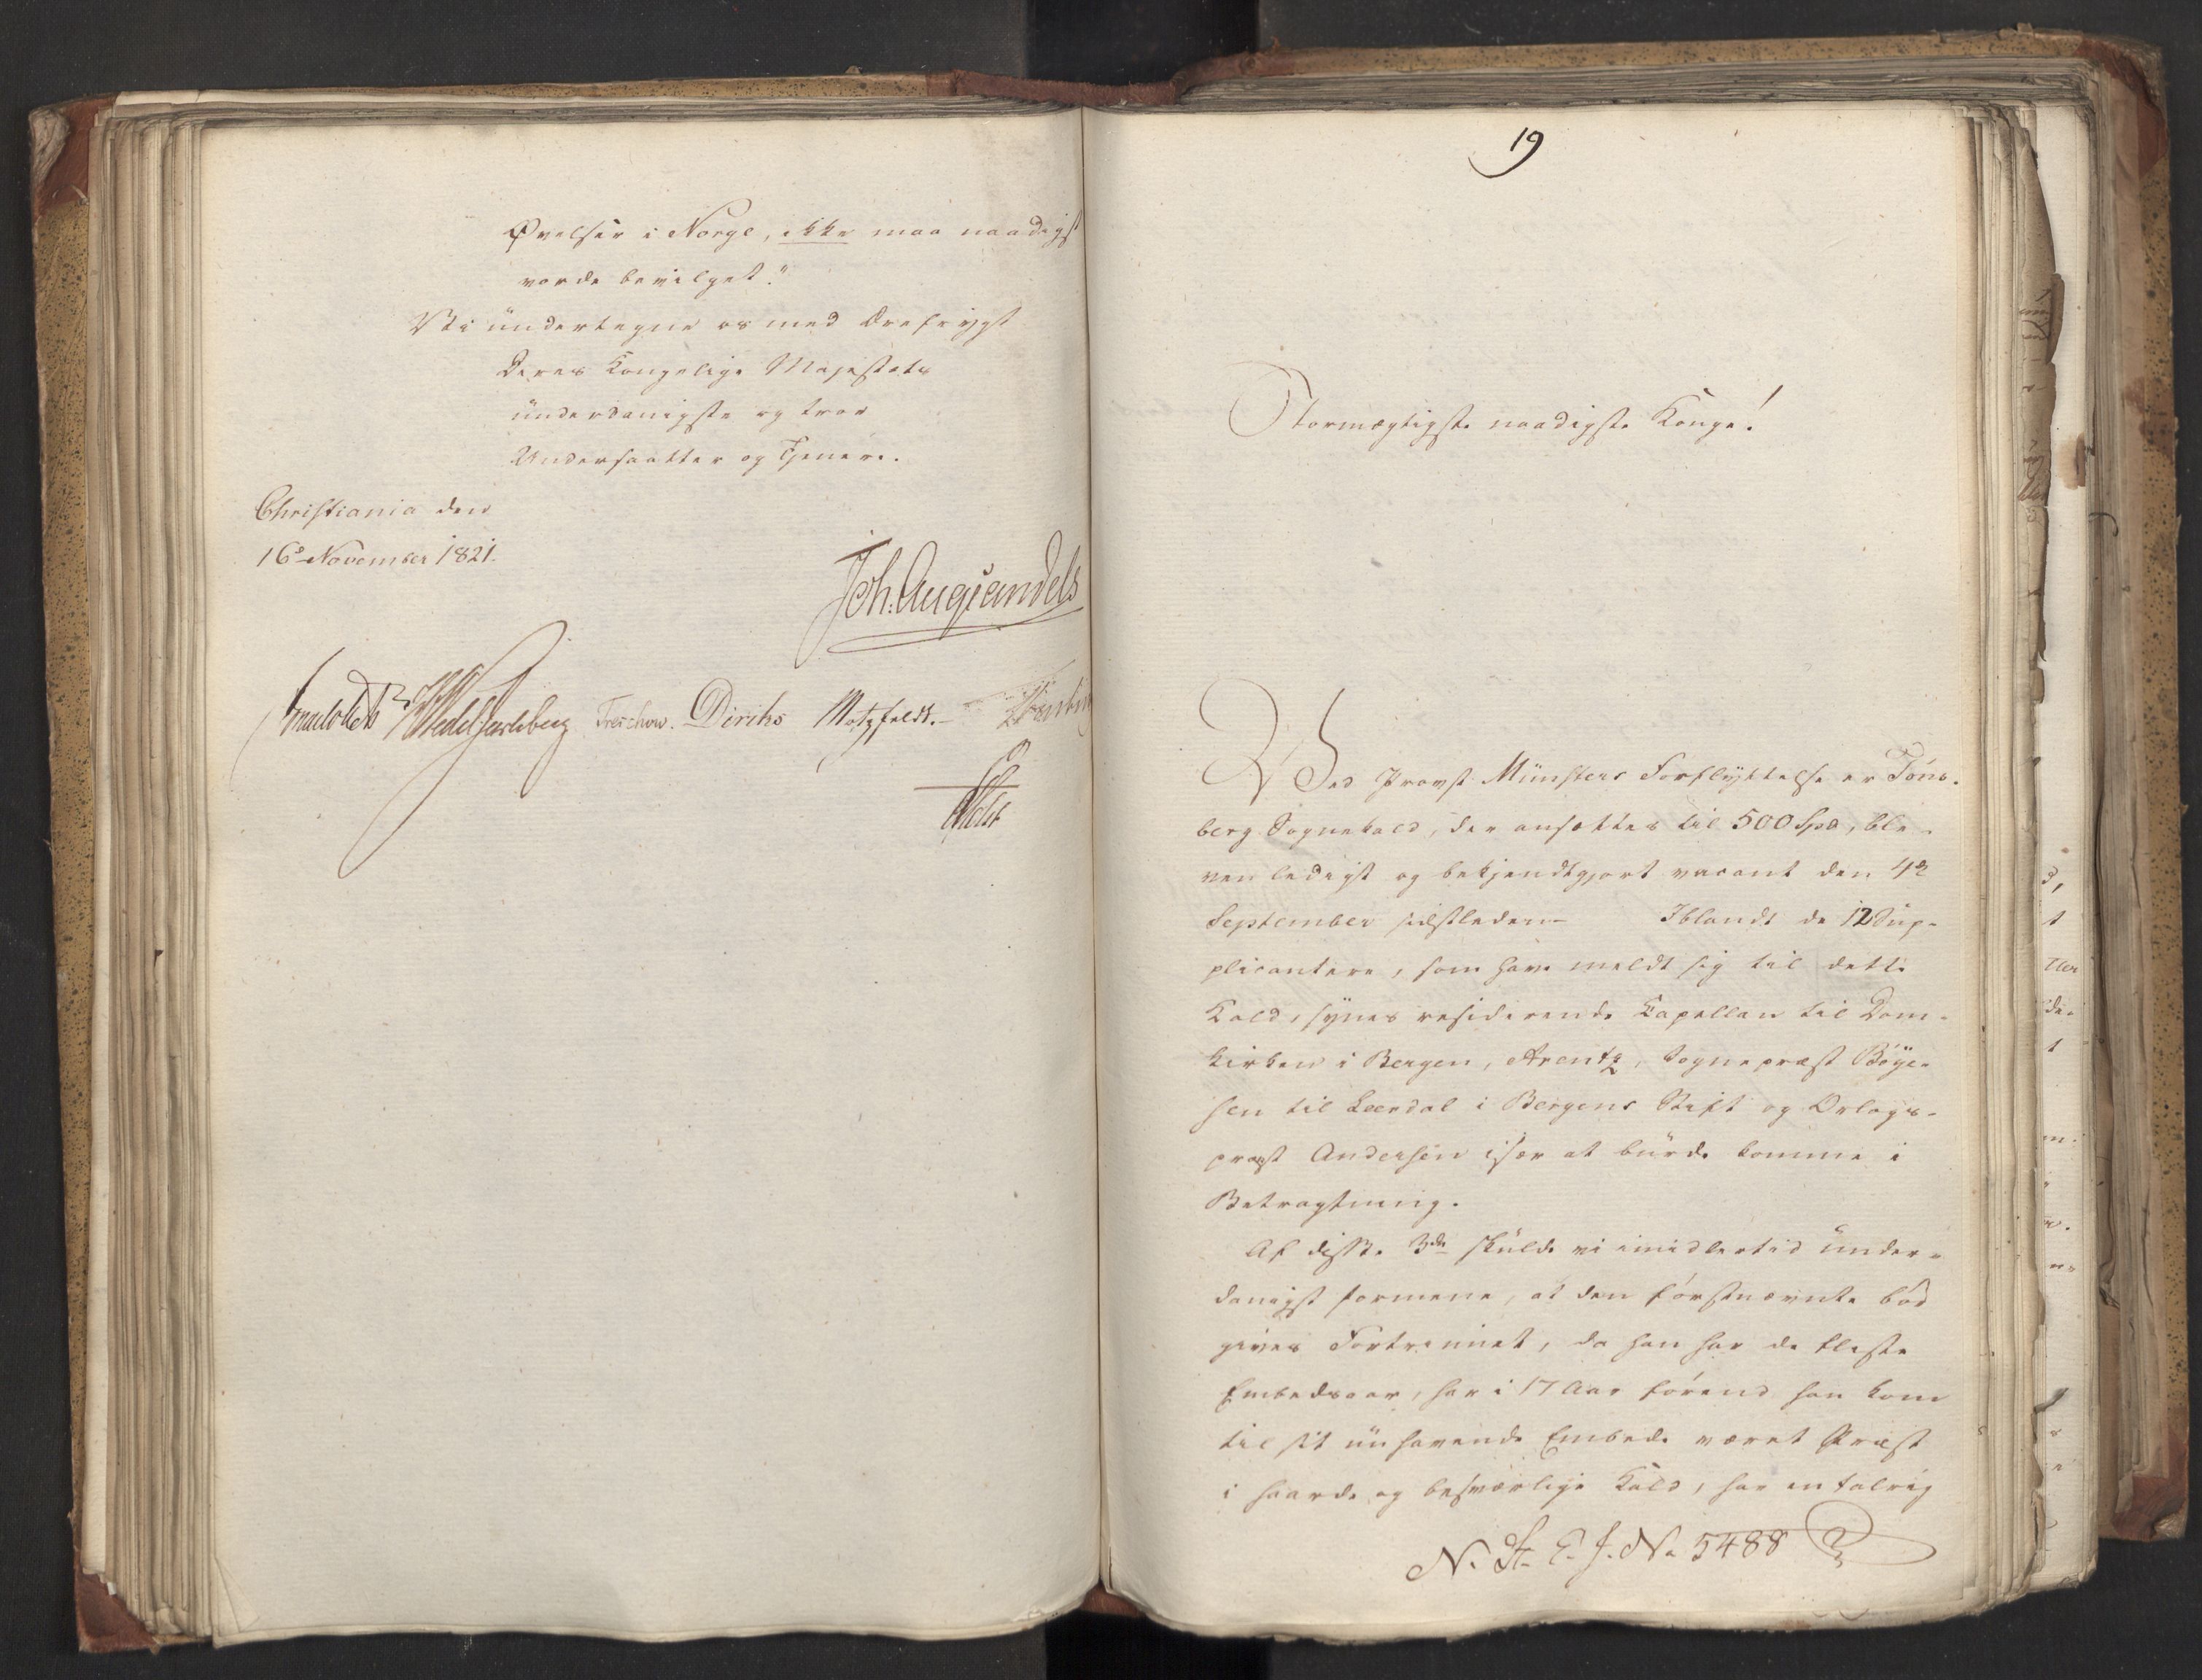 Øvelser i Norge, ikke maa naadigst
vorde bevilget."
Vi undertegne os med Ærefrygt
Deres Kongelige Majestæts
underdanigste og troe
Undersaatter og Tjenere.
Christiania den
16de November 1821.
Joh. Aug Sandels
M Wedel Jarlsberg Treschow. Diriks Motzfeldt.
19
Stormægtigste naadigste Konge!
Ved Provst Münsters Forflyttelse er Töns-
berg Sognekald, der ansættes til 500 Spd, ble-
ven ledigt og bekjendtgjort vacant den 4de
September sidstleden. Iblandt de 12 Sup-
plicantere, som have meldt sig til dette
Kald, synes residerende Kapellan til Dom-
kirken i Bergen, Arentz, Sognepræst Böye-
sen til Leerdal i Bergens Stift og Orlogs-
præst Andersen især at burde komme i
Betragtning.
Af disse 3de skulde vi imidlertid under-
danigst formene, at den förstnævnte bör
gives Fortrinnet, da han har de fleste
Embedsaar, har i 17 Aar förend han kom
til sit nuhavende Embede været Præst
i haarde og besværlige Kald, har en talrig
N. St. E. J. No 5488